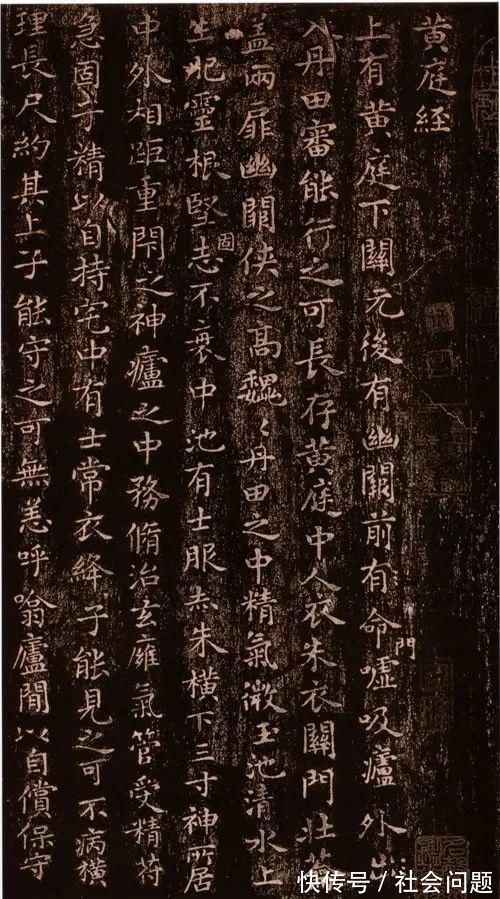 黄庭經
上有黄庭下關元後有幽闕前有命門噓吸廬外出
入丹田審能行之可長存黄庭中人衣朱衣關門壮蘥
盖兩扉幽闕俠之高魏〻丹田之中精氣微玉池清水上
生肥靈根堅固志不衰中池有士服赤朱橫下三寸神所居
中外相距重閇之神廬之中務脩治玄㢕氣管受精符
急固子精以自持宅中有士常衣絳子能見之可不病橫
理長尺約其上子能守之可無恙呼噏廬間以自償保守
快传号/社会问题